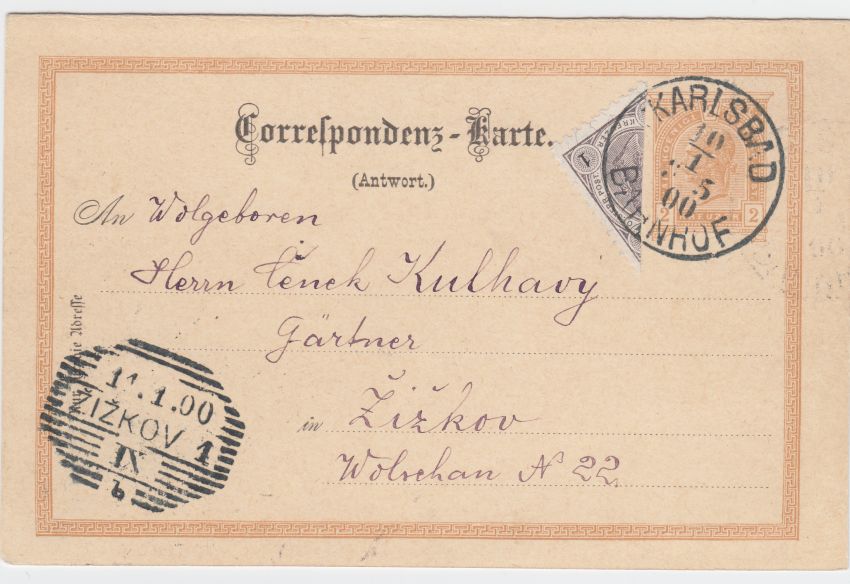 Correspondenz-Karte.
(Antwort.)
KARLSBAD
10
1
5
00
BAHNHOF
2 2
1
An Wolgeboren
Herrn Čeněk Kulhavy
Gärtner
in Žižkov
Wolschan N 22
Adresse
11.1.00
ŽIŽKOV 1
IX
b